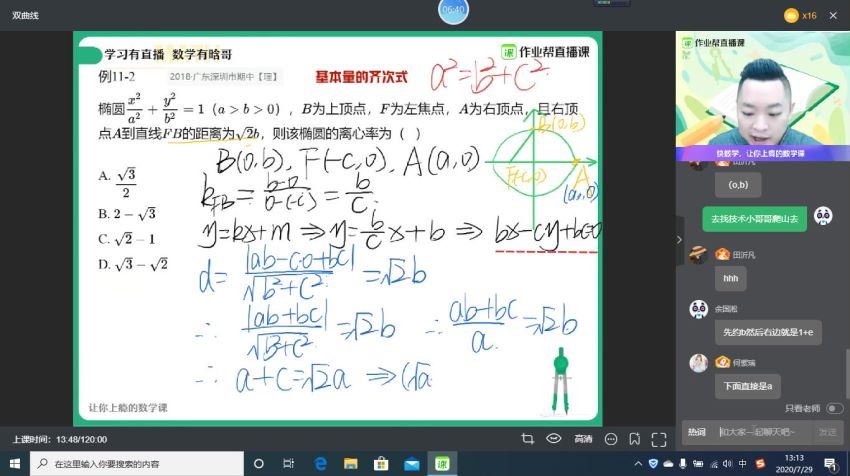 双曲线
06:40
x16
学习有直播 数学有晗哥
课 作业帮直播课
例11-2
2018·广东深圳市期中【理】
基本量的齐次式
a²=b²+c²
椭圆x²/a²+y²/b²=1（a>b>0），B为上顶点，F为左焦点，A为右顶点，且右顶
点A到直线FB的距离为√2b，则该椭圆的离心率为（ ）
A. √3/2
B. 2-√3
C. √2-1
D. √3-√2
B(0,b)
F(-c,0)
A
(a,0)
B(0,b), F(-c,0), A(a,0)
k_FB=(b-0)/(0-(-c))=b/c
y=kx+m⇒y=b/c x+b⇒bx-cy+bc=0
d=|ab-c·0+bc|/√(b²+c²)=√2b
∴|ab+bc|/√(b²+c²)=√2b ∴(ab+bc)/a=√2b
∴a+c=√2a⇒(√a
让你上瘾的数学课
课 作业帮直播课
快数学，让你上瘾的数学课
田沂凡
(o,b)
去找技术小哥哥爬山去
田沂凡
hhh
余国凇
先约b然后右边就是1+e
何紫瑞
下面直接是a
只看老师
热词
和大家一起聊天吧~
发送
上课时间：13:48/120:00
高清
在这里输入你要搜索的内容
课
中
13:13
2020/7/29